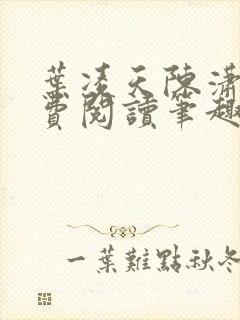 葉凌天陳瀟
費閱讀筆趣
一葉難點秋冬